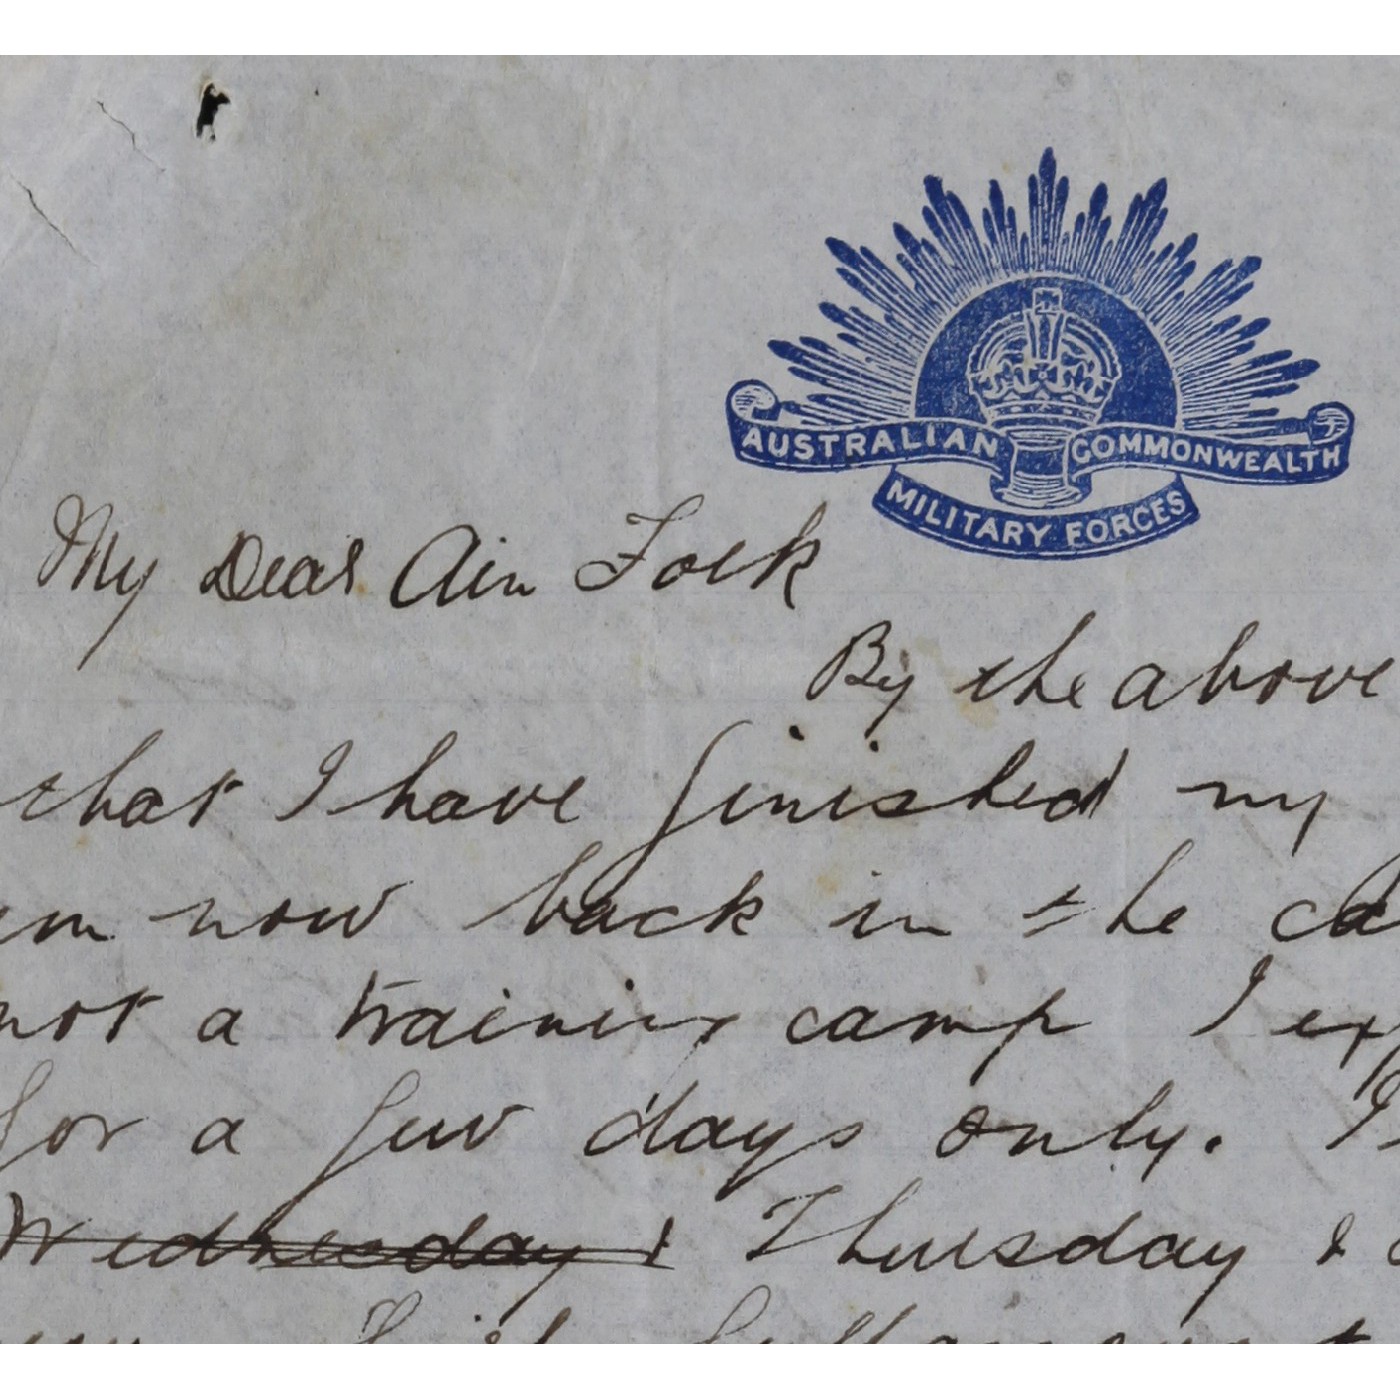 AUSTRALIAN COMMONWEALTH
MILITARY FORCES
My Dear Ain Folk
By the above
that I have finished my
now back in the
not a training camp I
for a few days only.
Wednesday & Thursday &